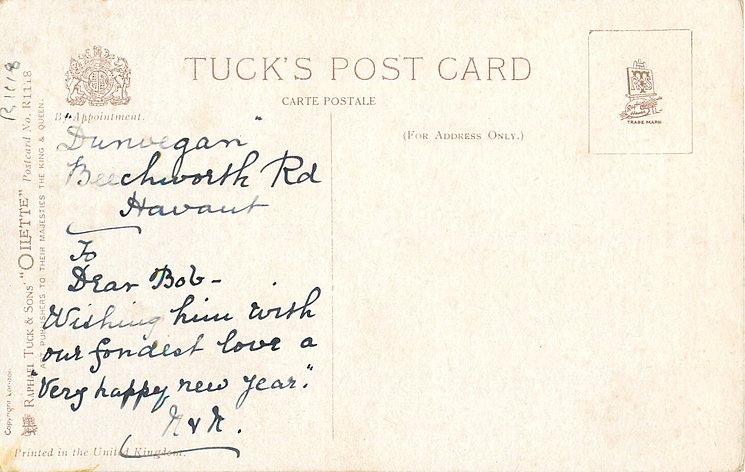 TUCK'S POST CARD
CARTE POSTALE
(FOR ADDRESS ONLY.)
By Appointment.
TRADE MARK
R1118
RAPHAEL TUCK & SONS' "OILETTE" Postcard No. R1118
ART PUBLISHERS TO THEIR MAJESTIES THE KING & QUEEN.
Copyright London.
"Dunvegan"
Beechworth Rd
Havant
To
Dear Bob -
Wishing him with
our fondest love a
"Very happy new year."
Printed in the United Kingdom.